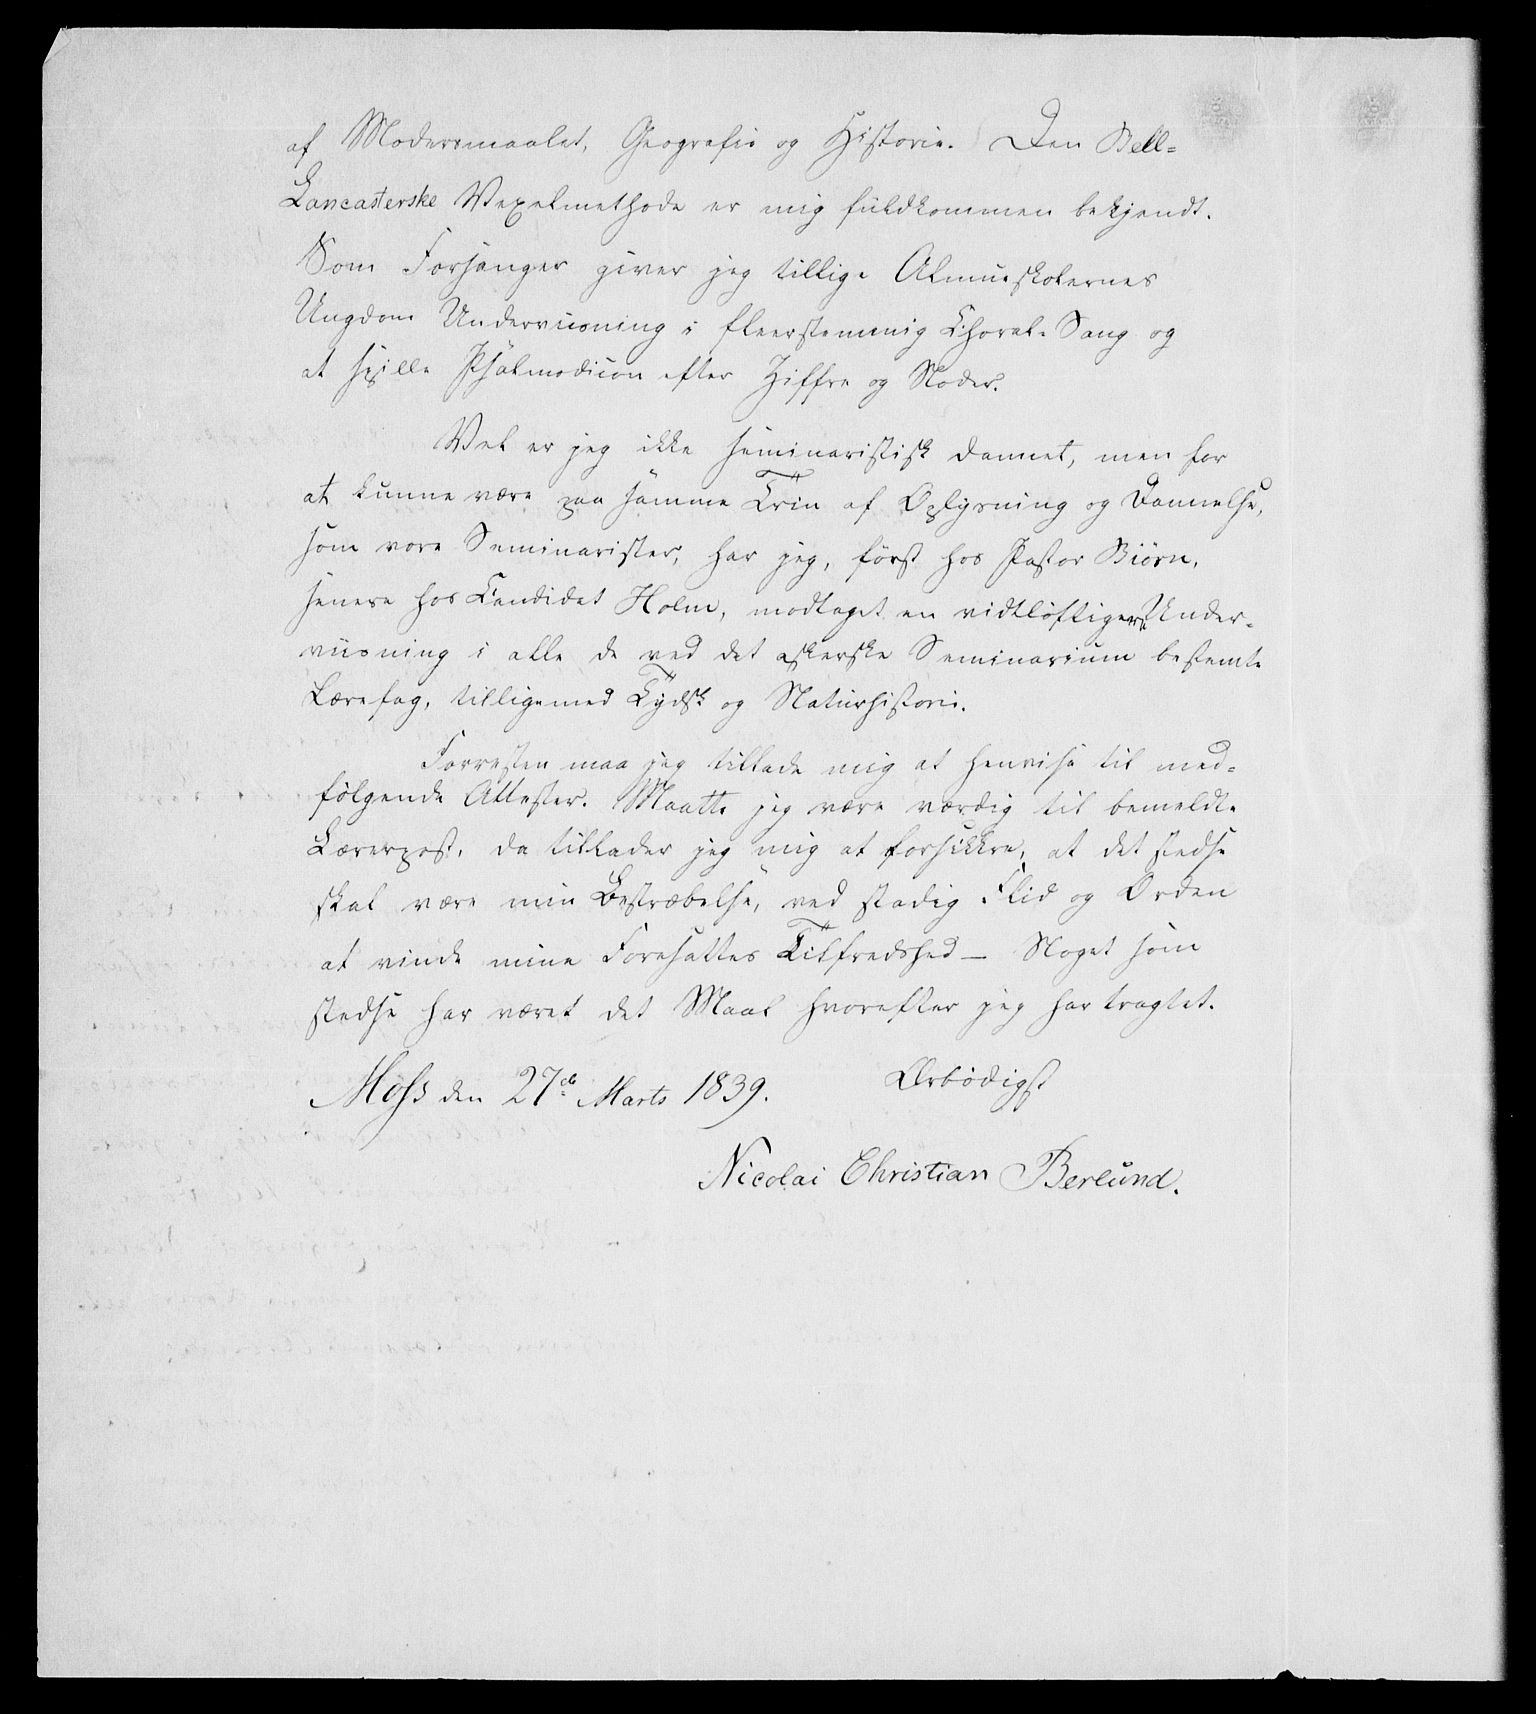 af Modersmaalet, Geografie og Historie. Den Bell=
Lancasterske Vexelmethode er mig fuldkommen bekjendt.
Som Forsanger giver jeg tillige Almueskolernes
Ungdom Underviisning i fleerstemmig Choral-Sang og
at spille Psalmodicon efter Ziffre og Noder.
Vel er jeg ikke seminaristisk dannet, men for
at kunne være paa samme Trin af Oplysning og Dannelse,
som vore Seminarister, har jeg, først hos Pastor Biørn,
senere hos Candidat Holm, modtaget en vidtløftigere Under-
viisning i alle de ved det askerske Seminarium bestemte
Lærefag, tilligemed Tydsk og Naturhistorie.
Forresten maa jeg tillade mig at henvise til med=
følgende Attester. Maatte jeg være værdig til bemeldte
Lærerpost, da tillader jeg mig at forsikkre, at det stedse
skal være min Bestræbelse, ved stadig Flid og Orden
at vinde mine Foresattes Tilfredshed – Noget som
stedse har været det Maal hvorefter jeg har tragtet.
Moss den 27de Marts 1839. Ærbødigst
Nicolai Christian Berlund.